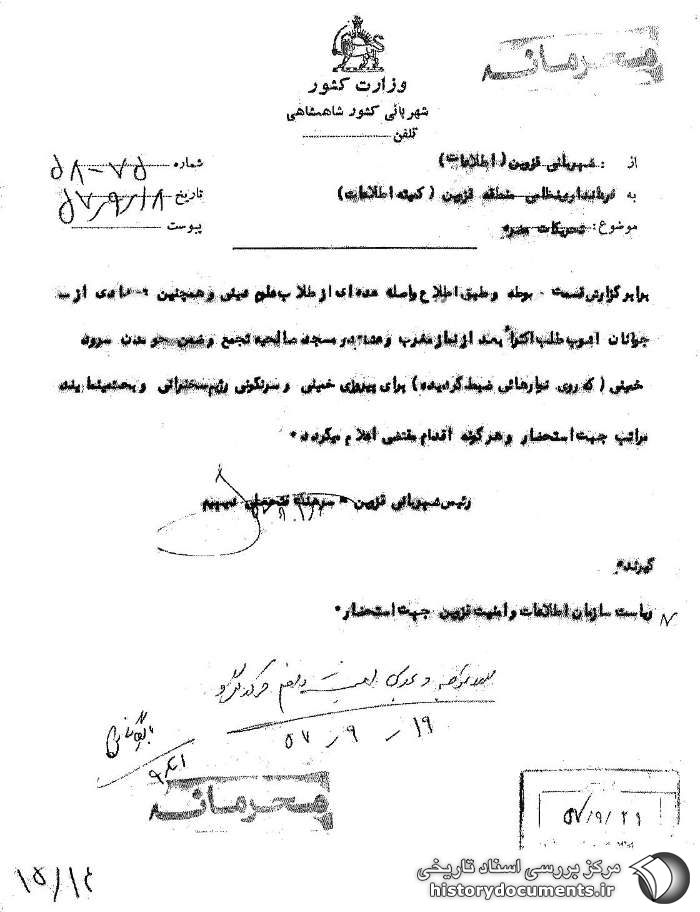 محرمانه
وزارت کشور
شهربانی کشور شاهنشاهی
تلفن
از : شهربانی قزوین (اطلاعات)
شماره ۷۵-۵۸
به فرمانداری نظامی منطقه قزوین (کمیته اطلاعات)
تاریخ ۵۷/۹/۱۸
موضوع: تحریکات مضره
پیوست
برابر گزارش قسمت مربوطه و طبق اطلاع واصله عده ای از طلاب علوم دینی و همچنین تعدادی از
جوانان آشوب طلب اکثراً بعد از نماز مغرب و عشاء در مسجد صالحیه تجمع و ضمن خواندن سرود
خمینی (که روی نوارهائی ضبط گردیده) برای پیروزی خمینی و سرنگونی رژیم سخنرانی و بحث مینمایند
مراتب جهت استحضار و هرگونه اقدام مقتضی اعلام میگردد.
رئیس شهربانی قزوین - سرهنگ
گیرنده
ریاست سازمان اطلاعات و امنیت قزوین جهت استحضار.
۵۷-۹-۱۹
بایگانی
محرمانه
۵۷/۹/۲۱
۱۵/۱۴
مرکز بررسی اسناد تاریخی
historydocuments.ir